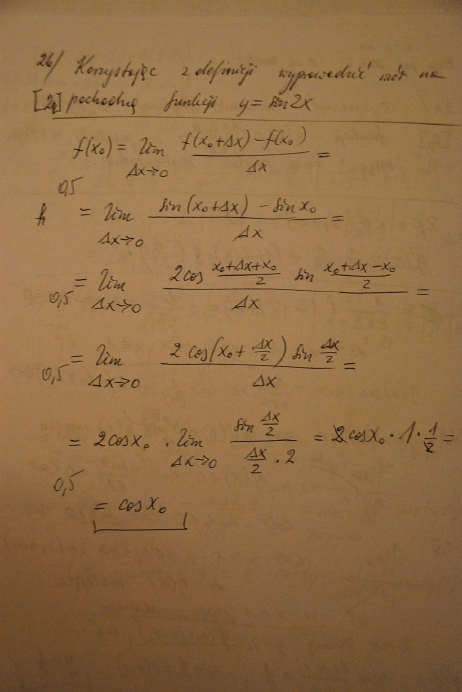 26/ Korzystając z definicji wyprowadzić wzór na
[2p] pochodną funkcji y = sin 2x
f(x₀) = lim Δx→0 (f(x₀+Δx) − f(x₀))/Δx =
0,5
= lim Δx→0 (sin(x₀+Δx) − sin x₀)/Δx =
0,5 = lim Δx→0 (2cos (x₀+Δx+x₀)/2 sin (x₀+Δx−x₀)/2)/Δx =
0,5 = lim Δx→0 (2 cos(x₀ + Δx/2) sin Δx/2)/Δx =
= 2cosx₀ · lim Δx→0 (sin Δx/2)/(Δx/2 · 2) = 2cosx₀ · 1 · 1/2 =
0,5
= cos x₀